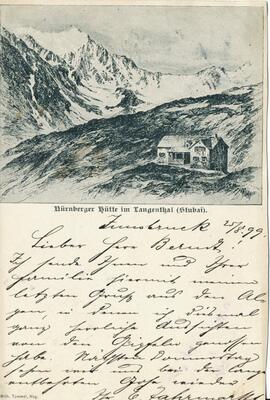 Nürnberger Hütte im Langenthal (Stubai).
Innsbruck 25/8 99.
Lieber Herr Berndt.
Ich sende Ihnen und Ihrer
Familie hiermit einen
letzten Gruß aus den Al-
pen, in denen ich diesmal
ganz herrliche Aussichten
von den Gipfeln genossen
habe. Nächsten Donnerstag
sehen wir uns bei der lange
entbehrten Gose wieder.